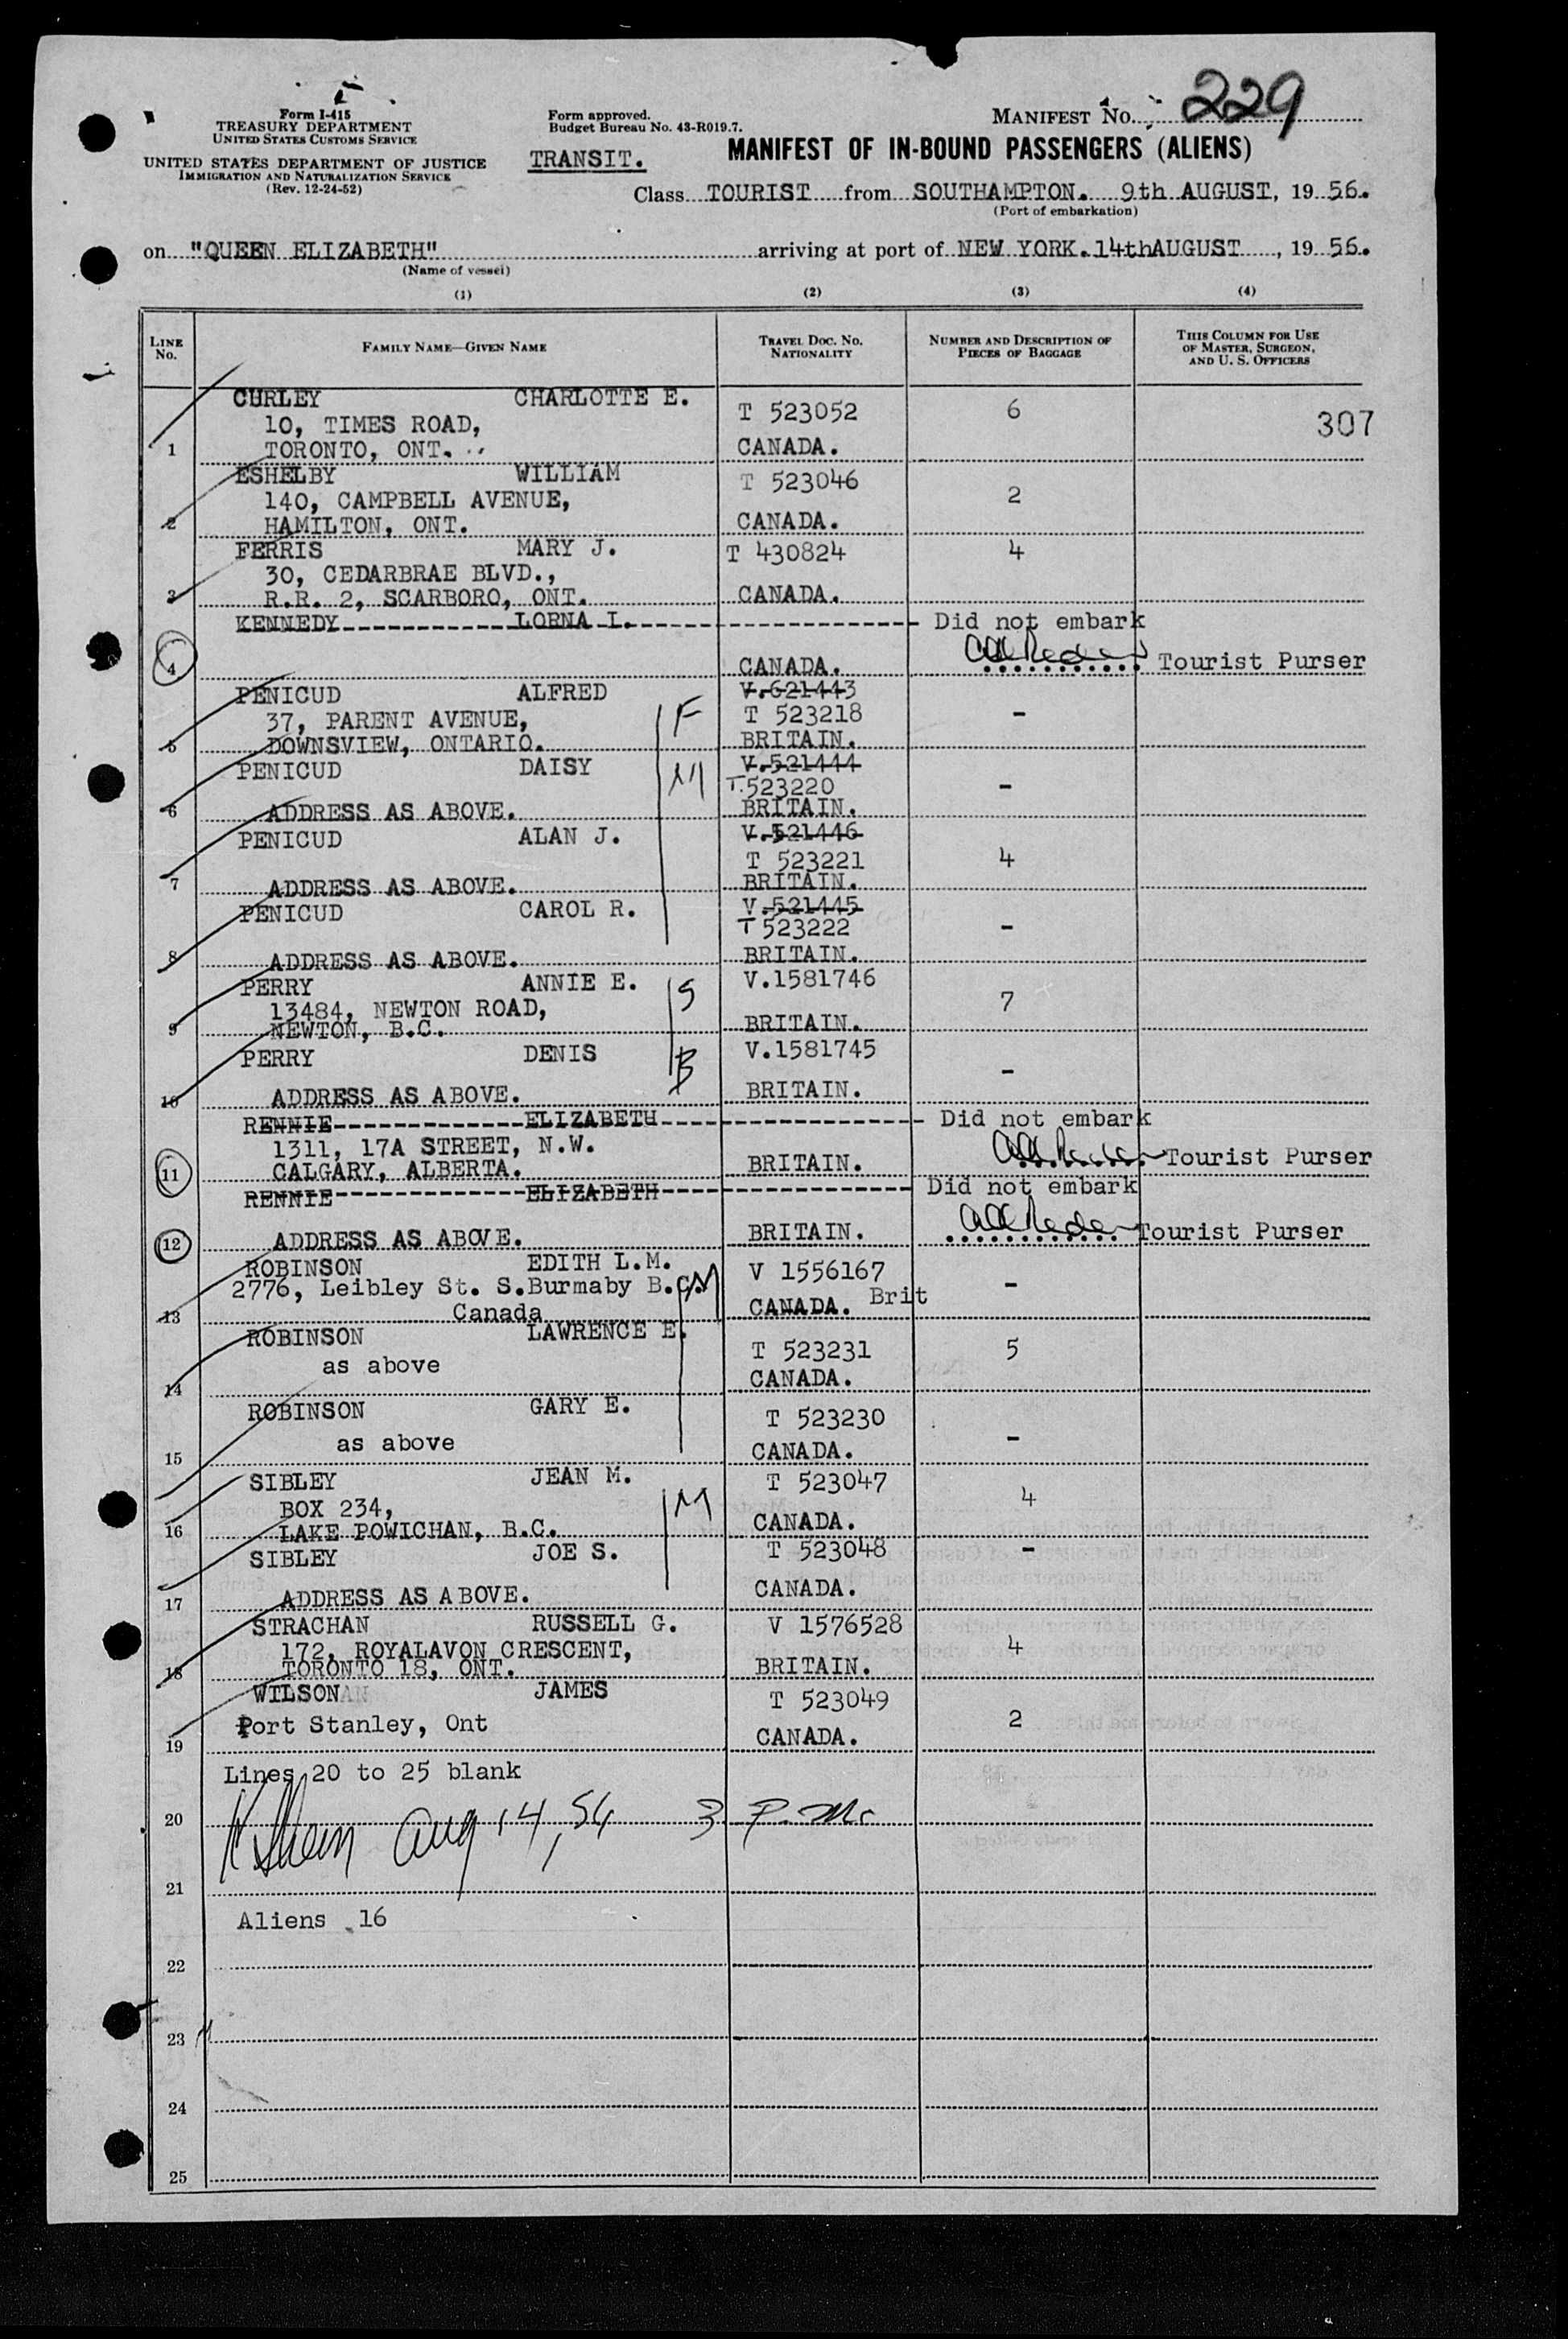 Form I-415
TREASURY DEPARTMENT
UNITED STATES CUSTOMS SERVICE
UNITED STATES DEPARTMENT OF JUSTICE
IMMIGRATION AND NATURALIZATION SERVICE
(Rev. 12-24-52)
Form approved.
Budget Bureau No. 43-R019.7.
TRANSIT.
MANIFEST NO. 229
MANIFEST OF IN-BOUND PASSENGERS (ALIENS)
Class TOURIST from SOUTHAMPTON. 9th AUGUST, 1956.
(Port of embarkation)
on "QUEEN ELIZABETH" arriving at port of NEW YORK. 14thAUGUST, 1956.
(Name of vessel)
(1) (2) (3) (4)
LINE No.
FAMILY NAME—GIVEN NAME
TRAVEL DOC. NO. NATIONALITY
NUMBER AND DESCRIPTION OF PIECES OF BAGGAGE
THIS COLUMN FOR USE OF MASTER, SURGEON, AND U. S. OFFICERS
CURLEY CHARLOTTE E. T 523052 6 307
10, TIMES ROAD,
1 TORONTO, ONT. CANADA.
ESHELBY WILLIAM T 523046 2
140, CAMPBELL AVENUE,
2 HAMILTON, ONT. CANADA.
FERRIS MARY J. T 430824 4
30, CEDARBRAE BLVD.,
3 R.R. 2, SCARBORO, ONT. CANADA.
KENNEDY LORNA I. Did not embark
4 CANADA. Tourist Purser
PENICUD ALFRED V.621443
37, PARENT AVENUE, F T 523218 -
5 DOWNSVIEW, ONTARIO. BRITAIN.
PENICUD DAISY M V.521444
T.523220 -
6 ADDRESS AS ABOVE. BRITAIN.
PENICUD ALAN J. V.521446
T 523221 4
7 ADDRESS AS ABOVE. BRITAIN.
PENICUD CAROL R. V.521445
T 523222 -
8 ADDRESS AS ABOVE. BRITAIN.
PERRY ANNIE E. S V.1581746
13484, NEWTON ROAD, 7
9 NEWTON, B.C. BRITAIN.
PERRY DENIS B V.1581745
-
10 ADDRESS AS ABOVE. BRITAIN.
RENNIE ELIZABETH Did not embark
1311, 17A STREET, N.W.
11 CALGARY, ALBERTA. BRITAIN. Tourist Purser
RENNIE ELIZABETH Did not embark
12 ADDRESS AS ABOVE. BRITAIN. Tourist Purser
ROBINSON EDITH L.M. V 1556167
2776, Leibley St. S.Burmaby B.C. M -
13 Canada CANADA. Brit
ROBINSON LAWRENCE E. T 523231 5
as above
14 CANADA.
ROBINSON GARY E. T 523230
as above -
15 CANADA.
SIBLEY JEAN M. T 523047
BOX 234, M 4
16 LAKE POWICHAN, B.C. CANADA.
SIBLEY JOE S. T 523048 -
17 ADDRESS AS ABOVE. CANADA.
STRACHAN RUSSELL G. V 1576528
172, ROYALAVON CRESCENT, 4
18 TORONTO 18, ONT. BRITAIN.
WILSON JAMES T 523049
Port Stanley, Ont 2
19 CANADA.
Lines 20 to 25 blank
20 Aug 14, 56 3 P.M.
21
Aliens 16
22
23
24
25